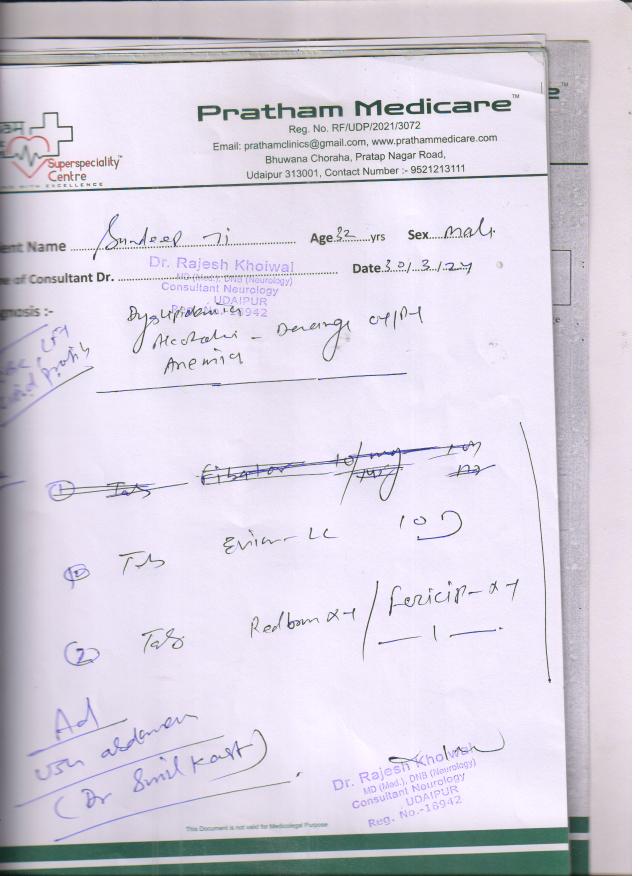 Pratham Medicare™
Reg. No. RF/UDP/2021/3072
Email: prathamclinics@gmail.com, www.prathammedicare.com
Bhuwana Choraha, Pratap Nagar Road,
Udaipur 313001, Contact Number :- 9521213111
Superspeciality™
Centre
WITH EXCELLENCE
ent Name Sundeep Ji Age 32 yrs Sex Male
e of Consultant Dr. Date 30/3/24
Dr. Rajesh Khoiwal
MD (Med.), DNB (Neurology)
Consultant Neurology
UDAIPUR
Reg. No.-16942
gnosis :-
Dyslipidemia
Alcoholic - Derange
Anemia
CBC, LFT
Lipid profile
1 Tab Fibator 10/
Tab LC 10D
2 Tab Redbom XT / Fericip-XT
— 1 —
Ad
USG abdomen
(Dr Sunil Kast)
Dr. Rajesh Khoiwal
MD (Med.), DNB (Neurology)
Consultant Neurology
UDAIPUR
Reg. No.-16942
This Document is not valid for Medicolegal Purpose